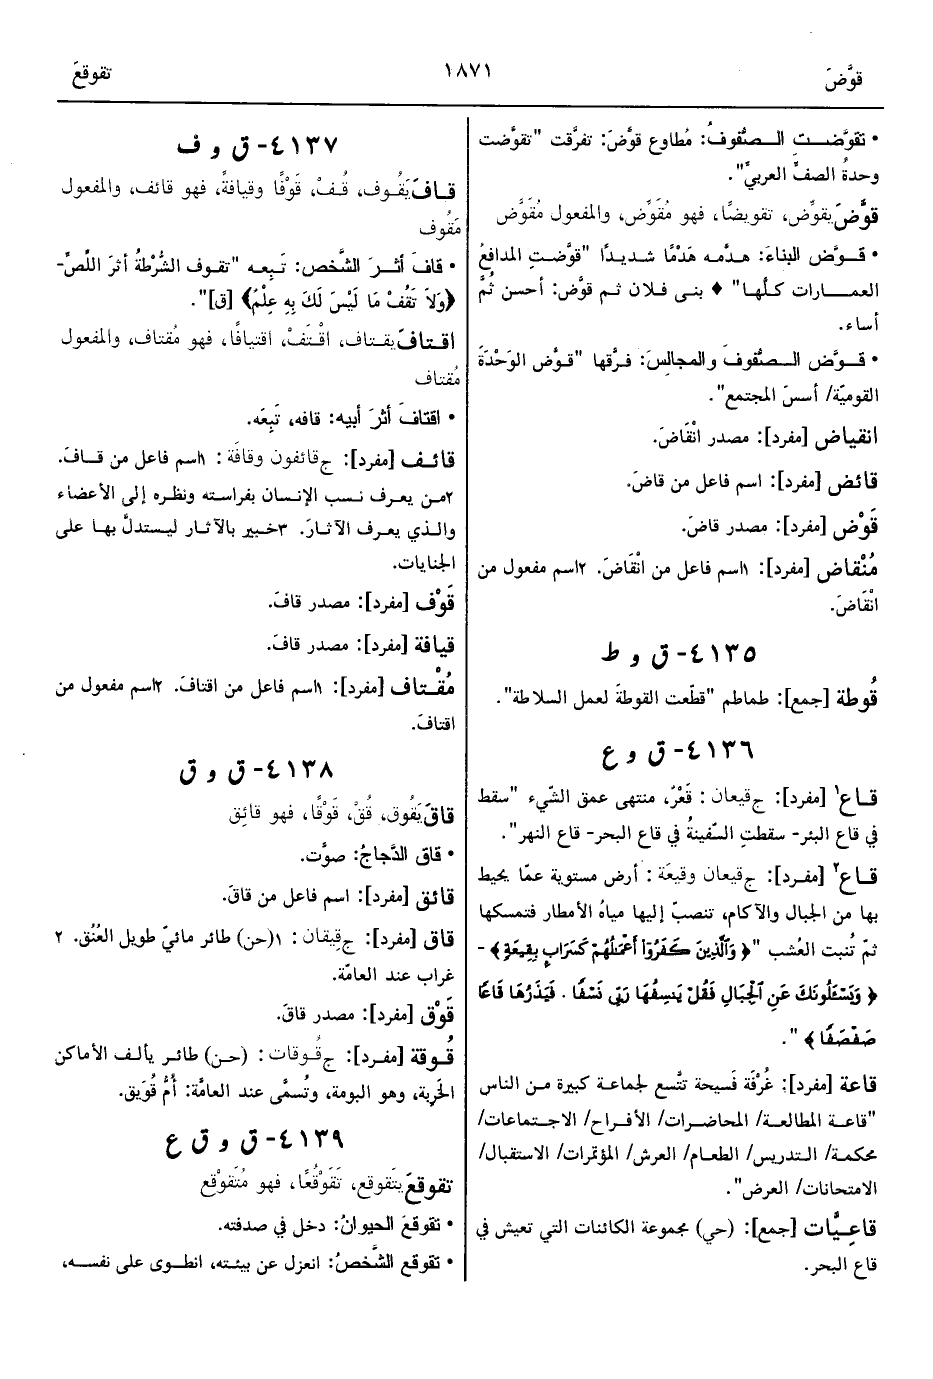 قوَّضَ
١٨٧١
تقوقعَ
• تقوَّضـت الـصُّفوفُ: مُطاوع قوَّضَ: تفرَّقت "تقوَّضت
وحدةُ الصفِّ العربيِّ".
قوَّضَ يقوِّض، تقويضًا، فهو مُقَوِّض، والمفعول مُقَوَّض
• قـوَّض البناءَ: هـدَّمه هَدْمًا شديـدًا "قوَّضتِ المدافعُ
العمـارات كلَّها" ♦ بنى فلان ثم قوَّض: أحسن ثُمَّ
أساء.
• قـوَّض الـصُّفوفَ والمجالسَ: فـرَّقها "قـوَّض الوَحْدَةَ
القوميّة/ أسسَ المجتمع".
انقياض [مفرد]: مصدر انْقَاضَ.
قائض [مفرد]: اسم فاعل من قاضَ.
قَوْض [مفرد]: مصدر قاضَ.
مُنْقاض [مفرد]: ١اسم فاعل من انْقَاضَ. ٢اسم مفعول من
انْقَاضَ.
٤١٣٥- ق و ط
قُوطة [جمع]: طماطم "قطَّعت القوطةَ لعمل السلاطة".
٤١٣٦- ق و ع
قـاع١ [مفرد]: ج قيعان: قَعْرٌ، منتهى عمق الشّيء "سقط
في قاع البئر- سقطتِ السَّفينةُ في قاع البحر- قاع النهر".
قـاع٢ [مفـرد]: ج قيعان وقيعَة: أرض مستوية عمّا يحيط
بها من الجبال والآكام، تنصبّ إليها مياهُ الأمطار فتمسكها
ثمّ تُنبت العُشب "﴿ وَٱلَّذِينَ كَفَرُوٓا۟ أَعْمَٰلُهُمْ كَسَرَابٍۭ بِقِيعَةٍ ﴾-
﴿ وَيَسْـَٔلُونَكَ عَنِ ٱلْجِبَالِ فَقُلْ يَنسِفُهَا رَبِّى نَسْفًا . فَيَذَرُهَا قَاعًا
صَفْصَفًا ﴾ ".
قاعة [مفرد]: غُرْفَة فَسيحة تتَّسع لجماعة كبيرة مـن الناس
"قاعـة المطالعـة/ المحاضـرات/ الأفـراح/ الاجـتماعات/
محكمـة/ الـتدريس/ الطعـام/ العرش/ المؤتمرات/ الاستقبال/
الامتحانات/ العرض".
قاعِيَّات [جمع]: (حي) مجموعة الكائنات التي تعيش في
قاع البحر.
٤١٣٧- ق و ف
قـافَ يَقُـوف، قُـفْ، قَوْفًا وقيافةً، فهو قائف، والمفعول
مَقُوف
• قافَ أثـرَ الشَّخص: تَبِعه "تقوف الشُّرْطةُ أثرَ اللِّصِّ-
﴿وَلَا تَقُفْ مَا لَيْسَ لَكَ بِهِ عِلْمٌ﴾ [ق]".
اقـتافَ يقـتاف، اقْتَفْ، اقتيافًا، فهو مُقتاف، والمفعول
مُقتاف
• اقتافَ أثرَ أبيه: قافه، تَبِعَه.
قائـف [مفرد]: ج قائفون وقافَة: ١اسم فاعل من قـافَ.
٢مـن يعرف نسب الإنسان بفراسته ونظره إلى الأعضاء
والـذي يعرف الآثـارَ. ٣خـبير بالآثـار ليستدلَّ بهـا على
الجنايات.
قَوْف [مفرد]: مصدر قافَ.
قيافة [مفرد]: مصدر قافَ.
مُقْـتاف [مفرد]: ١اسم فاعل من اقتافَ. ٢اسم مفعول من
اقتافَ.
٤١٣٨- ق و ق
قاقَ يَقُوق، قُقْ، قَوْقًا، فهو قائِق
• قاق الدَّجاجُ: صوَّت.
قائق [مفرد]: اسم فاعل من قاقَ.
قاق [مفرد]: ج قِيقان: ١(حن) طائر مائيّ طويل العُنُق. ٢
غراب عند العامّة.
قَوْق [مفرد]: مصدر قاقَ.
قُـوقة [مفرد]: ج قُـوقات: (حـن) طائـر يألـف الأماكن
الخَرِبة، وهو البومة، وتُسمَّى عند العامَّة: أُمُّ قُوَيق.
٤١٣٩- ق و ق ع
تقوقعَ يتَقوقع، تَقَوْقُعًا، فهو مُتَقوْقِع
• تقوقعَ الحيوانُ: دخل في صدفته.
• تقوقع الشَّخصُ: انعزل عن بيئـته، انطـوى على نفسـه،